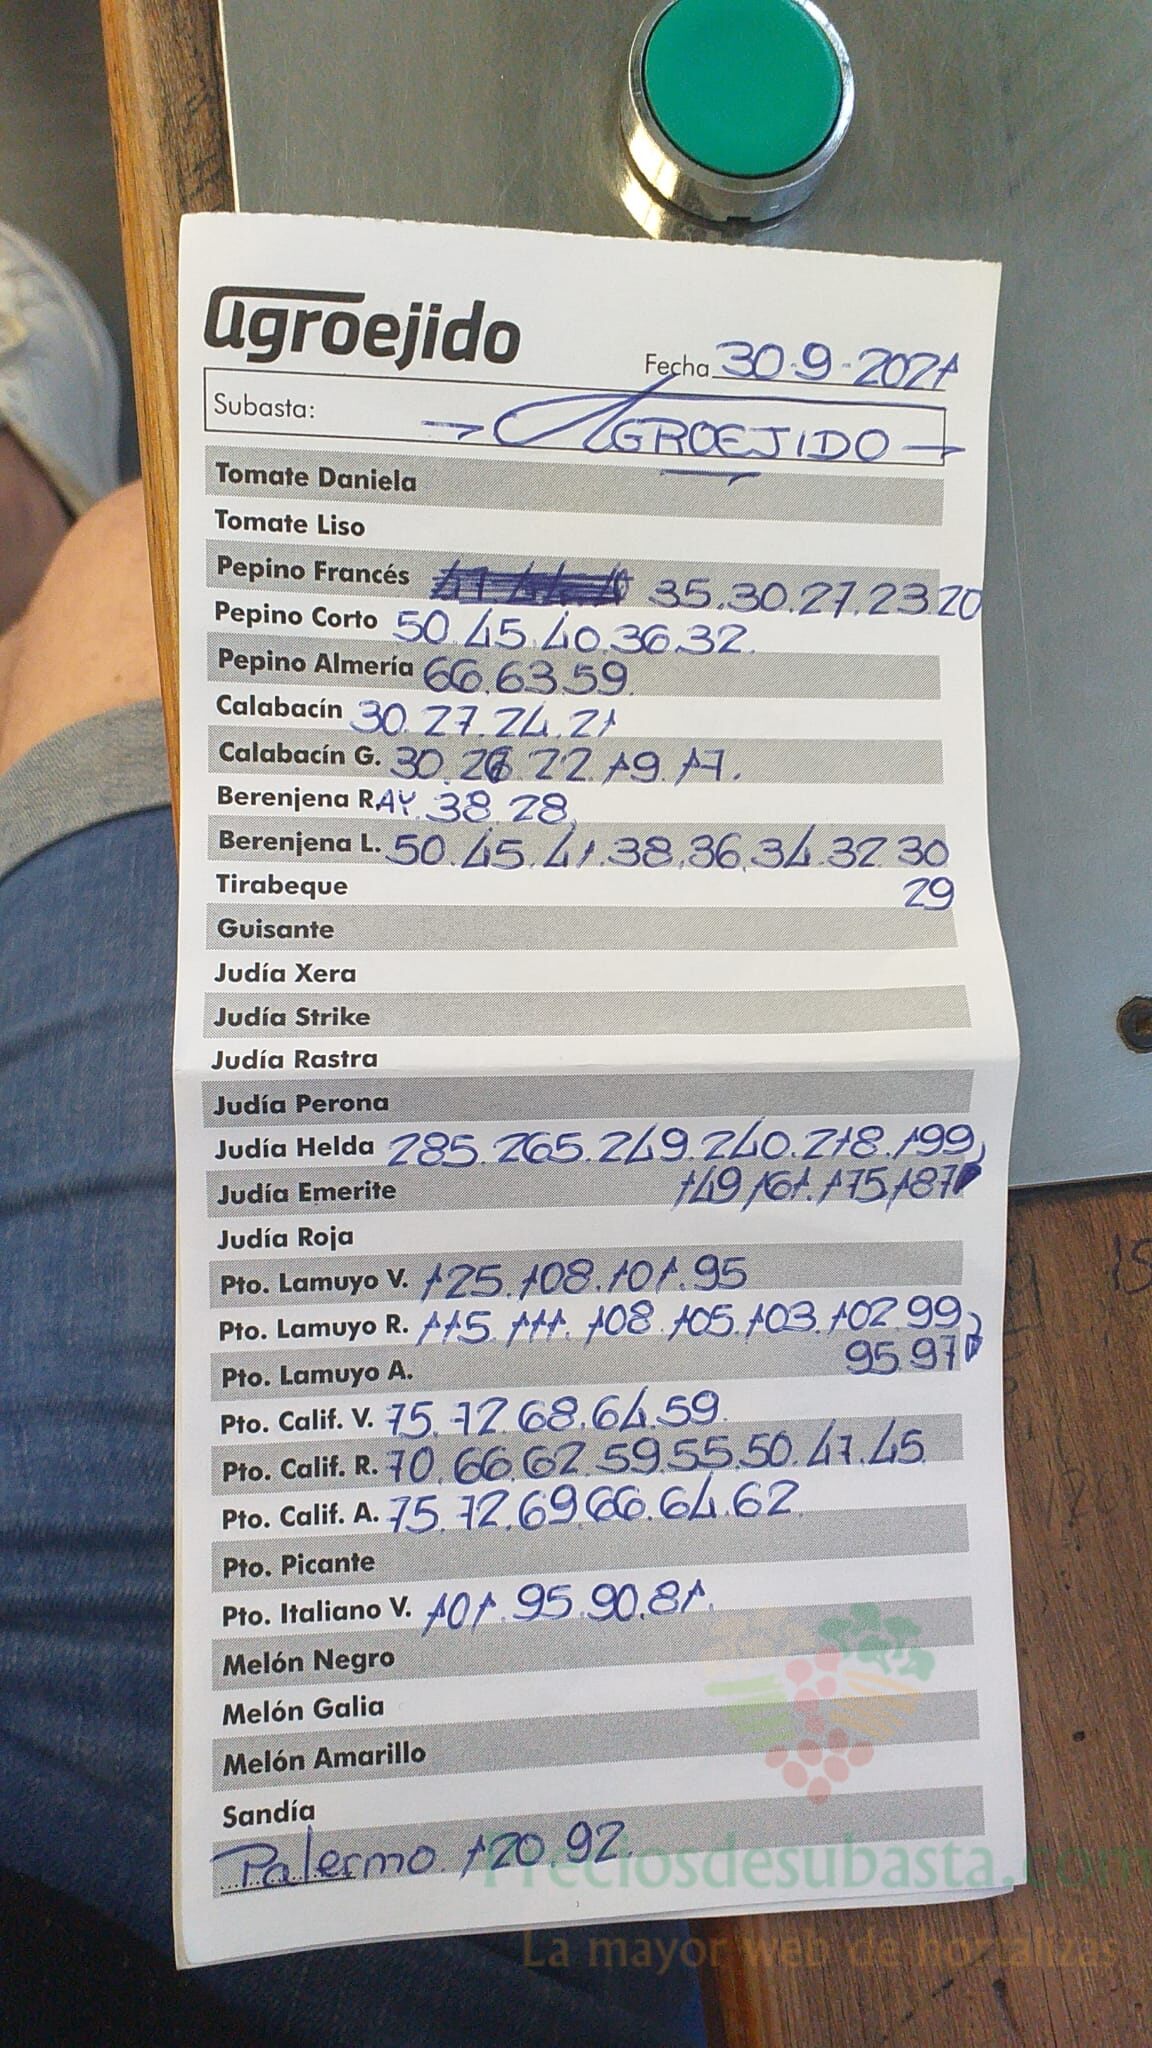 agroejido
Fecha 30-9-2021
Subasta: → AGROEJIDO
Tomate Daniela
Tomate Liso
Pepino Francés 35.30.27.23.20
Pepino Corto 50.45.40.36.32.
Pepino Almería 66.63.59.
Calabacín 30.27.24.21
Calabacín G. 30.26.22.19.17.
Berenjena RAY. 38.28.
Berenjena L. 50.45.41.38.36.34.32.30
Tirabeque 29
Guisante
Judía Xera
Judía Strike
Judía Rastra
Judía Perona
Judía Helda 285.265.249.240.218.199
Judía Emerite 149.161.175.187
Judía Roja
Pto. Lamuyo V. 125.108.101.95
Pto. Lamuyo R. 115.111.108.105.103.102.99
Pto. Lamuyo A. 95.97
Pto. Calif. V. 75.72.68.64.59.
Pto. Calif. R. 70.66.62.59.55.50.47.45
Pto. Calif. A. 75.72.69.66.64.62.
Pto. Picante
Pto. Italiano V. 101.95.90.81.
Melón Negro
Melón Galia
Melón Amarillo
Sandía
Palermo. 120.92.
Preciosdesubasta.com
La mayor web de hortalizas